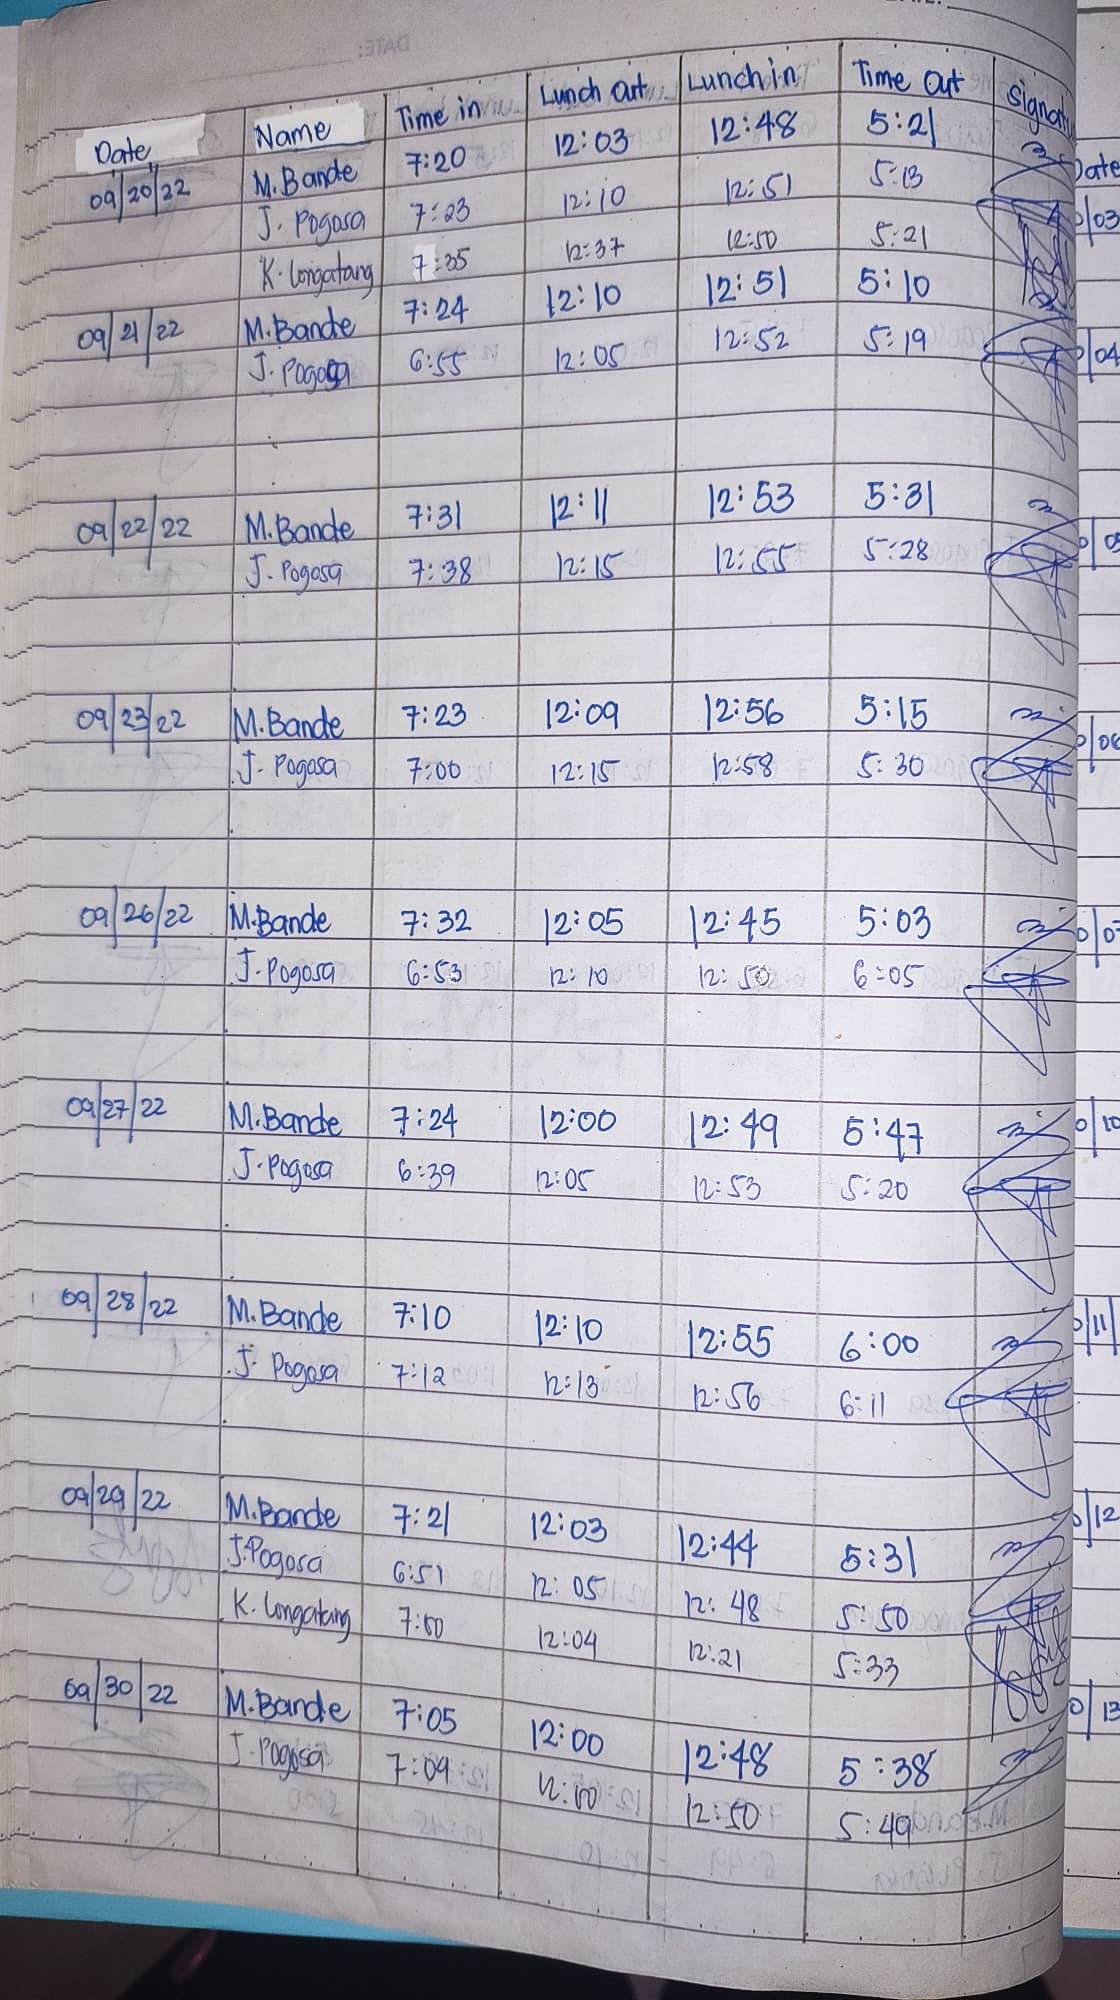 Date Name Time in Lunch out Lunch in Time Out Signatu
09/20/22 M. Bande 7:20 12:03 12:48 5:21
J. Pogosa 7:23 12:10 12:51 5:13
K. Longatang 7:35 12:37 12:50 5:21
09/21/22 M. Bande 7:24 12:10 12:51 5:10
J. Pogosa 6:55 12:05 12:52 5:19
09/22/22 M. Bande 7:31 12:11 12:53 5:31
J. Pogosa 7:38 12:15 12:55 5:28
09/23/22 M. Bande 7:23 12:09 12:56 5:15
J. Pogosa 7:00 12:15 12:58 5:30
09/26/22 M. Bande 7:32 12:05 12:45 5:03
J. Pogosa 6:53 12:10 12:50 6:05
09/27/22 M. Bande 7:24 12:00 12:49 5:47
J. Pogosa 6:39 12:05 12:53 5:20
09/28/22 M. Bande 7:10 12:10 12:55 6:00
J. Pogosa 7:12 12:13 12:56 6:11
09/29/22 M. Bande 7:21 12:03 12:44 5:31
J. Pogosa 6:51 12:05 12:48 5:50
K. Longatang 7:00 12:04 12:21 5:33
09/30/22 M. Bande 7:05 12:00 12:48 5:38
J. Pogosa 7:09 12:00 12:50 5:49
Date
/03
/04
/05
/06
/07
/10
/11
/12
/13